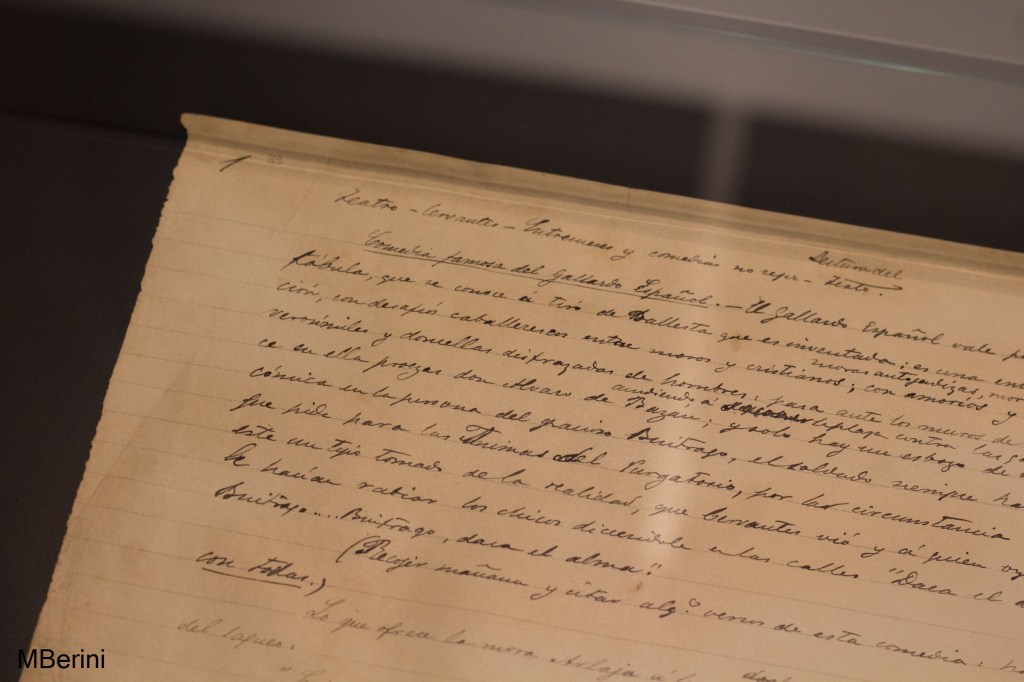 1
Teatro - Cervantes - Entremeses y comedias no repr - Lectura del texto.
Comedia famosa del Gallardo Español. - El Gallardo Español vale p
fábula, que se conoce á tiro de ballesta que es inventada: es una en
ción, con desafíos caballerescos entre moros y cristianos; moras antojadizas, mor
verosímiles y doncellas disfrazadas de hombres; con amoríos y
ce en ella proezas don Alvaro de Bazan, acudiendo á para ante los muros de
cómica en la persona del gracioso Buitrago, y solo hay un esbozo de
que pide para las Ánimas del Purgatorio, el soldado siempre ha
este un tipo tomado de la realidad, por las circunstancia
que Cervantes vió y á quien oy
le hacían rabiar los chicos diciendole en las calles "Daca el a
Buitrago... Buitrago, daca el alma".
(Recojer mañana y citar alg.º versos de esta comedia:
con todas.)
Lo que ofrece la mora Arlaja á
del saqueo:
MBerini